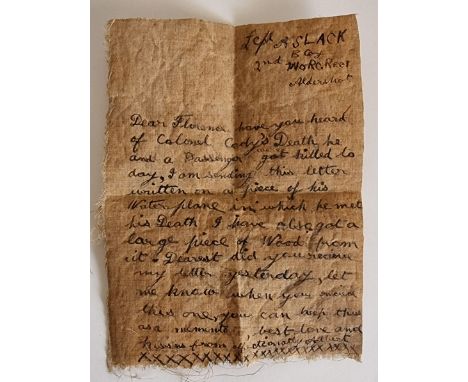 Lcpl A SLACK
B Coy
2nd WORC REGT
Aldershot
Dear Florence have you heard
of Colonel Cody's Death he
and a Passenger got killed to
day, I am sending this letter
written on a piece of his
Water plane in which he met
his Death I have also got a
large piece of Wood from
it. Dearest did you receive
my letter yesterday, let
me know when you receive
this one, you can keep this
as a memento, best love and
kisses from
XXXXXXXXXXXXXXXXXXX